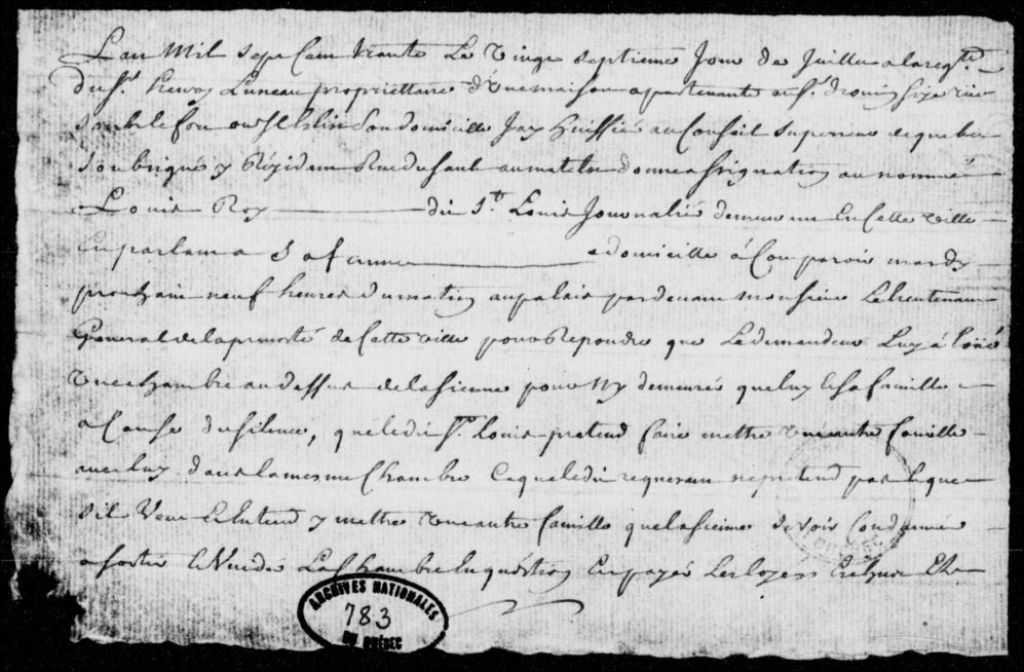 L'an Mil Sept Cent trente Le Vingt Septieme Jour de Juillet a la reqte
du Sr. Luneau propriettaire d'Une maison apartenante au Sr. drouin Size rüe
Son domicille Jay Huissié au Conseil Superieur de quebec
Soubsigné y Rezidant Rue du Sault au matelot donné assignation au nommé
Louis Roy dit St. Louis Journalié demeurant En Cette Ville
En parlant a Sa femme a domicille à Comparoir mardy
prochain neuf heures du matin au palais pardevant monsieur Le lieutenant
General de la prevosté de Cette Ville pour Repondre que Le demandeur Luy à loüé
Une chambre au dessus de la sienne pour Ny demeurer que luy & Sa famille
a Cause du Silence, que ledit Sr. Louis pretend faire mettre Une autre famille
avec luy dans la mesme Chambre Ce que ledit requerant ne pretend pas & que
Sil Veut & Entend y mettre Une autre famille que la Sienne de Voir Condamner
a Sortir & Vuider La Chambre En question En payer Les loyers &
ARCHIVES NATIONALES
783
DU QUÉBEC